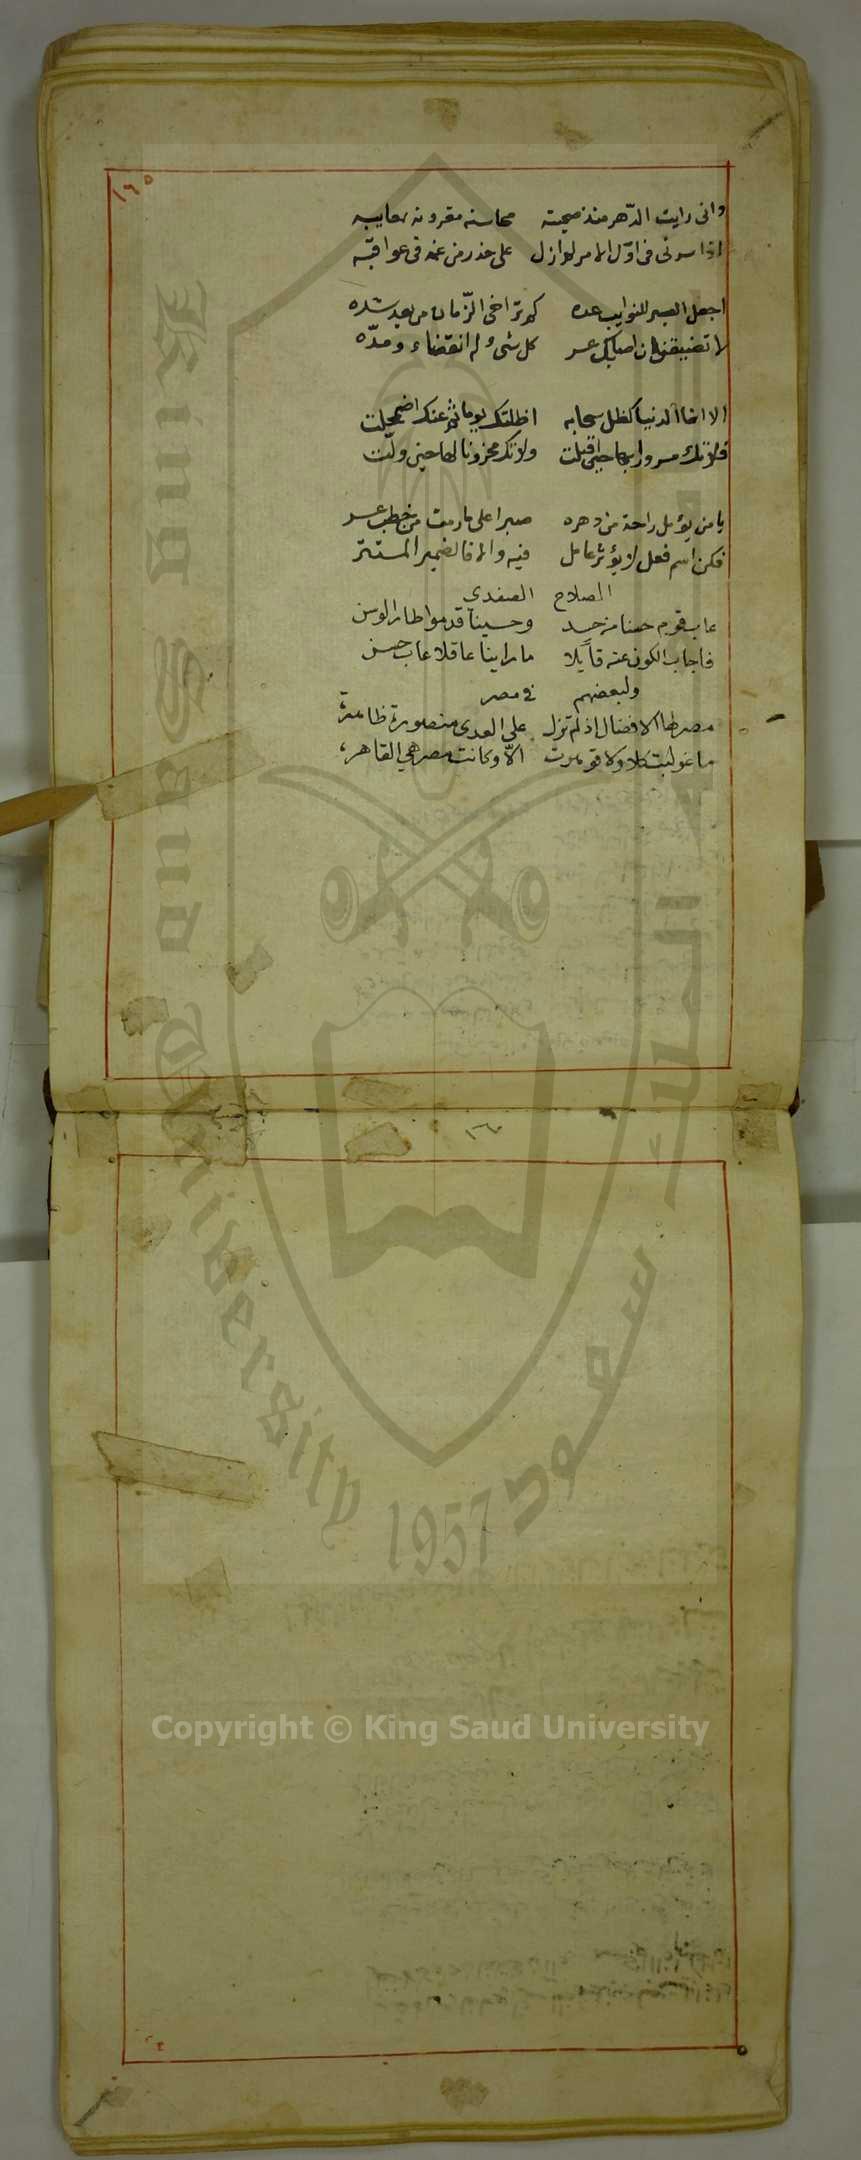 ١٦٥
وانى رايت الدّهر منذ صحبته محاسنه مقرونه بمعايبه
اذا سرنى فى اوّل الامر لم ازل على حذر من غمه فى عواقبه
اجعل الصبر للنوايب عده كم ترا خى الزّمان من بعد شده
لا تضيقن ان اصابك عسر كل شىء له انقضاء ومدّه
الا انما الدنيا كظل سحابه اظلتك يوما ثم عنك اضمحلت
فلا تك مسرورا بها حين اقبلت ولا تك محزونا لها حين ولّت
يا من يؤمل راحة من دهره صبرا على ما رمت من خطب عسر
فكن اسم فعل لا يؤثر عامل فيه والا فالضمير المستتر
الصلاح الصفدى
عاب قوم حسنا من حسد وحسينا قدموا طار الوسن
فاجاب الكون عنه قايلا ما راينا عاقلا عاب حسن
ولبعضهم فى مصر
مصر لها الافضال اذ لم تزل على العدى منصورة ظاهرة
ما غولبت كلا ولا قوهرت الاّ وكانت مصر هي القاهره
King Saud University
جامعة الملك سعود
1957
Copyright © King Saud University